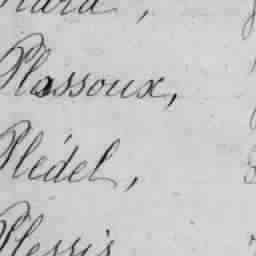 Plassoux,
Plédel,
Plessis